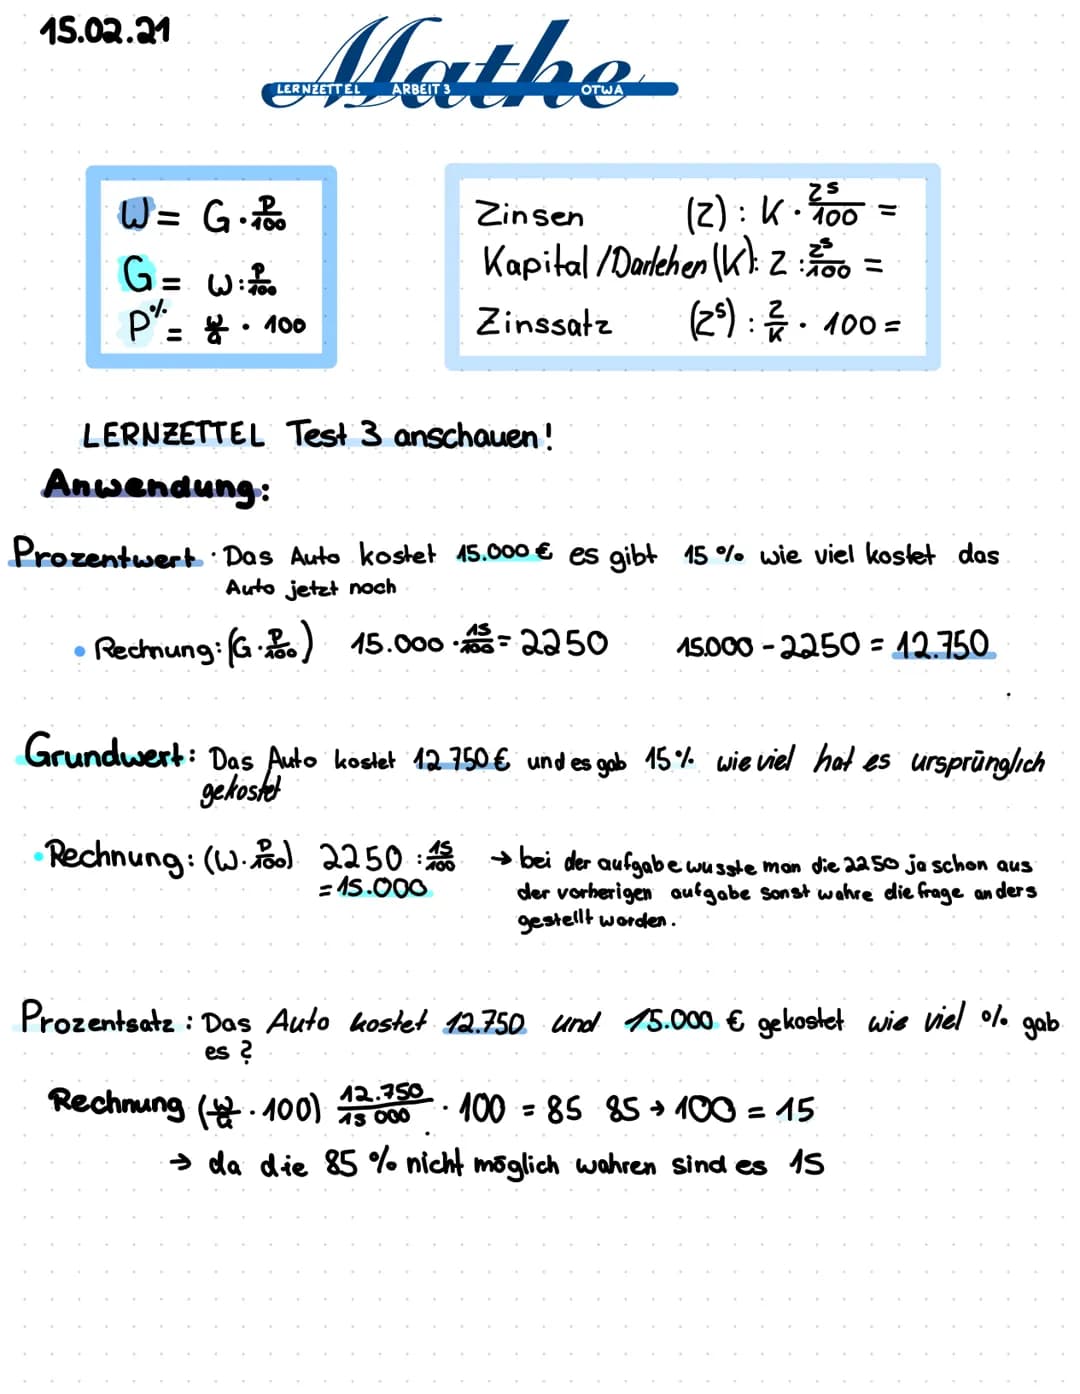 15.02.21
Mathe
LERNZETTEL ARBEIT 3 OTWA
W = G · p/100
G = W : p/100
P% = W/G · 100
Zinsen (Z) : K · Zs/100 =
Kapital/Darlehen (K): Z : Zs/100 =
Zinssatz (Zs) : Z/K · 100 =
LERNZETTEL Test 3 anschauen!
Anwendung:
Prozentwert · Das Auto kostet 15.000 € es gibt 15 % wie viel kostet das
Auto jetzt noch
• Rechnung: (G · P/100) 15.000 · 15/100 = 2250 15.000 - 2250 = 12.750
Grundwert: Das Auto kostet 12 750 € und es gab 15 % wie viel hat es ursprünglich
gekostet
• Rechnung: (W · P/100) 2250 : 15/100 → bei der aufgabe wusste man die 2250 ja schon aus
= 15.000 der vorherigen aufgabe sonst wahre die frage anders
gestellt worden.
Prozentsatz : Das Auto kostet 12.750 und 15.000 € gekostet wie viel % gab
es ?
Rechnung (W/G · 100) 12.750/15 000 · 100 = 85 85 → 100 = 15
→ da die 85 % nicht möglich wahren sind es 15